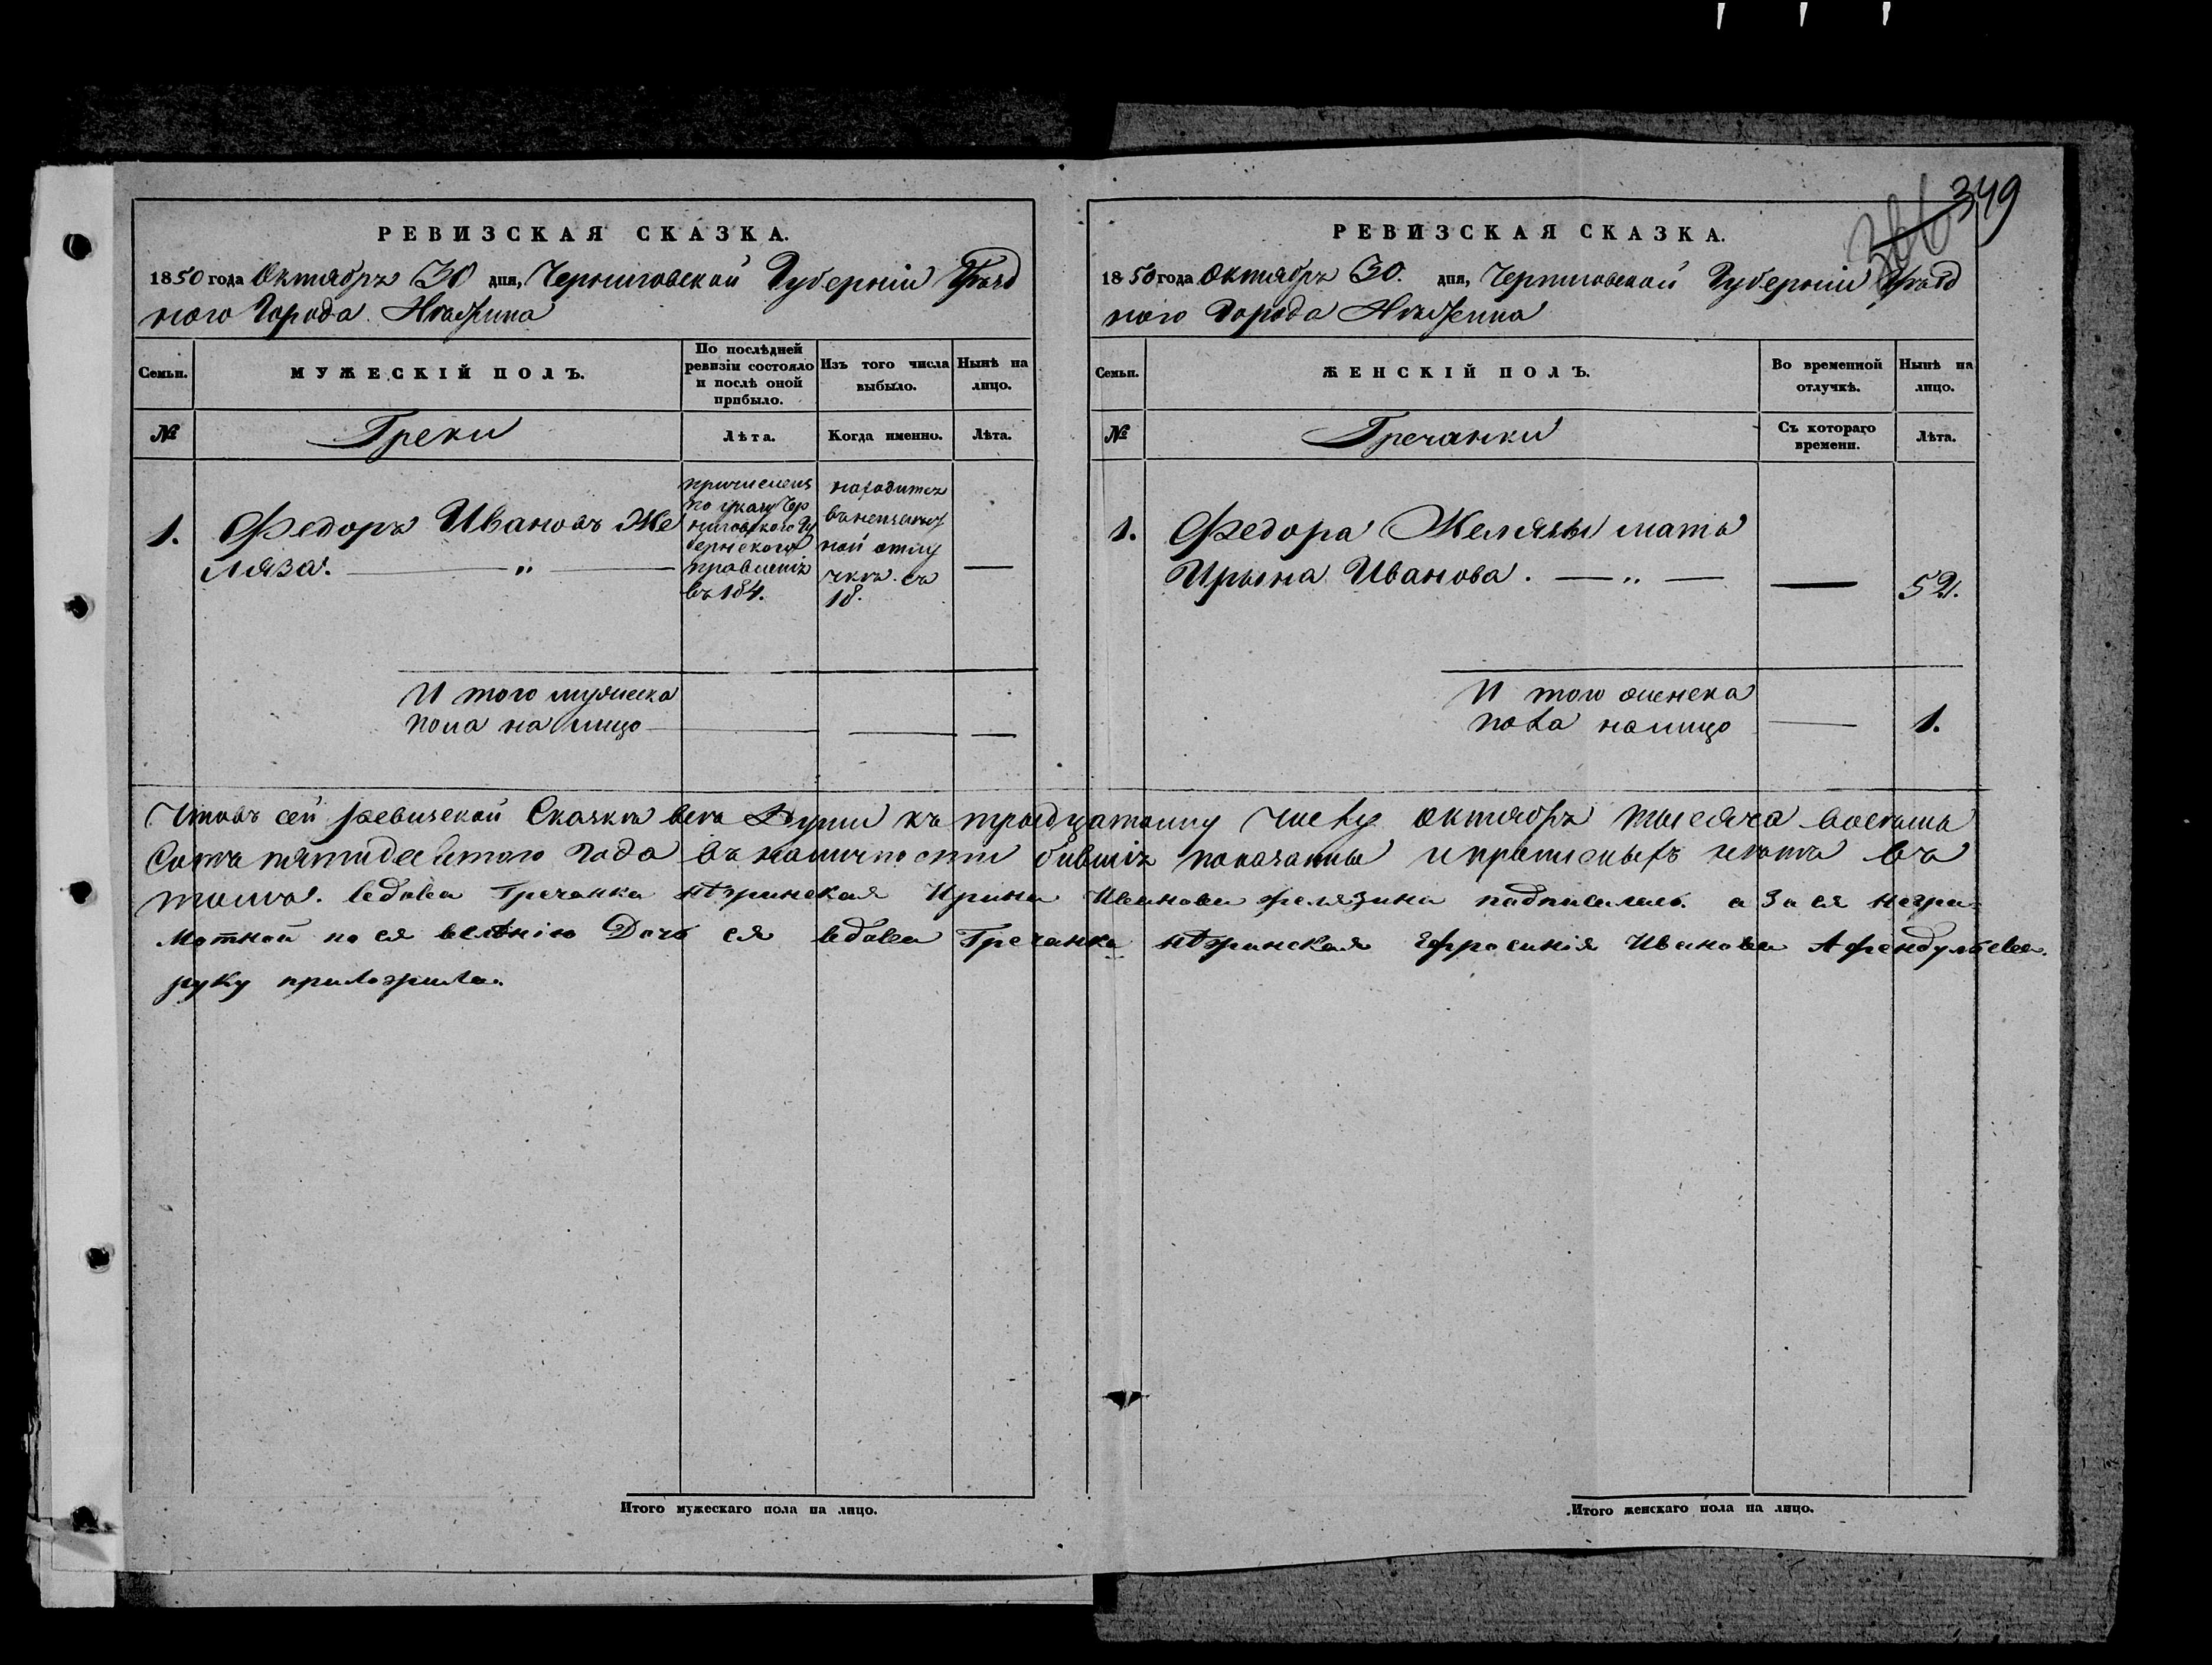 349
РЕВИЗСКАЯ СКАЗКА.
1850 года Октября 30 дня, Черниговской Губерніи Уѣзд
ного Города Нѣжина
Семьи.
МУЖЕСКІЙ ПОЛЪ.
По послѣдней ревизіи состояло и послѣ оной прибыло.
Изъ того числа выбыло.
Нынѣ на лицо.
№
Греки
Лѣта.
Когда именно.
Лѣта.
1.
Федоръ Ивановъ Же
ляза. — „ —
причисленъ
по указу Чер
ниговского Гу
бернского
правленія
въ 184.
находится
въ
ной отлу
чкѣ съ
18.
—
И того мужеска
пола на лицо — — —
РЕВИЗСКАЯ СКАЗКА.
1850 года Октября 30. дня, Черниговской Губерніи Уѣзд
ного Города Нѣжина
Семьи.
ЖЕНСКІЙ ПОЛЪ.
Во временной отлучкѣ.
Нынѣ на лицо.
№
Гречанки
Съ котораго времени.
Лѣта.
1.
Федора Желязы мать
Ирына Иванова. — „ — — 52.
И того женска
пола налицо — 1.
Что въ сей ревизской Сказкѣ всѣ Души къ тридцатому числу октября тысяча восемь
Сотъ пятидесятого Года въ наличности бывшія показаны и прописныхъ нѣтъ въ
томъ. вдова Гречанка нѣжинская Ирина Иванова желязина подписалась. а за ея негра-
мотной по ея велѣнію Дочь ея вдова Гречанка нѣжинская Ефросинія Иванова Афендульева.
руку приложила.
Итого мужескаго пола на лицо.
Итого женскаго пола на лицо.